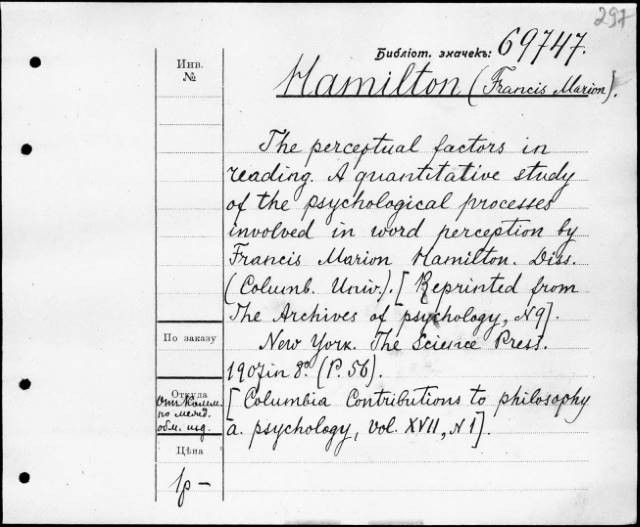 297
Библіот. значекъ: 69747.
Инв.
№
Hamilton (Francis Marion).
The perceptual factors in
reading. A quantitative study
of the psychological processes
involved in word perception by
Francis Marion Hamilton. Diss.
(Columb. Univ.). [Reprinted from
The Archives of psychology, N 9].
По заказу
New York. The Science Press.
1907 in 8º. (P. 56).
Откуда
От Комм.
по межд.
обм. изд.
[Columbia Contributions to philosophy
a. psychology, vol. XVII, N 1].
Цѣна
1 р –